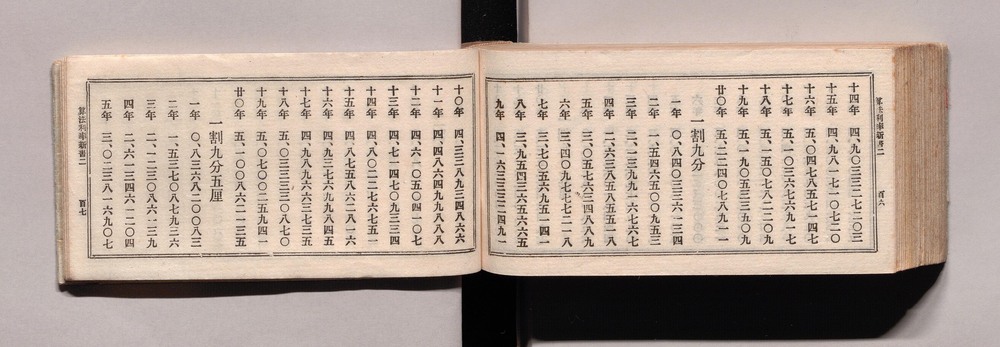 算法利率新書二　百六
十四年　四、九〇三三二七二〇三
十五年　四、九八一七一〇七二〇
十六年　五、〇四七八五七一四五
十七年　五、一〇三六七六九一七
十八年　五、一五〇七八二二〇九
十九年　五、一九〇五三三五〇九
廿〇年　五、二二四〇七八九一一
一割九分
一年　〇、八四〇三三六一三四
二年　一、五四六五〇〇九五三
三年　二、一三九九一六七六七
四年　二、六三八五八五五一八
五年　三、〇五七六三四八八九
六年　三、四〇九七七七二一八
七年　三、七〇五六九五一四一
八年　三、九五四三六五六六五
九年　四、一六三三三二四九一
十〇年　四、三三八九三四八六六
十一年　四、四八六四九九八八八
十二年　四、六一〇五〇四一〇七
十三年　四、七一四七〇九三三四
十四年　四、八〇二二七六七五一
十五年　四、八七五八六二八一六
十六年　四、九三七六九九八四五
十七年　四、九八九六六三七三五
十八年　五、〇三三三三〇八七〇
十九年　五、〇七〇〇二五九四一
廿〇年　五、一〇〇八六二一三五
一割九分五厘
一年　〇、八三六八二〇〇八三
二年　一、五三七〇八七九三六
三年　二、一二三〇八六一三九
四年　二、六一三四六一二〇四
五年　三、〇二三八一六九〇七
算法利率新書二　百七